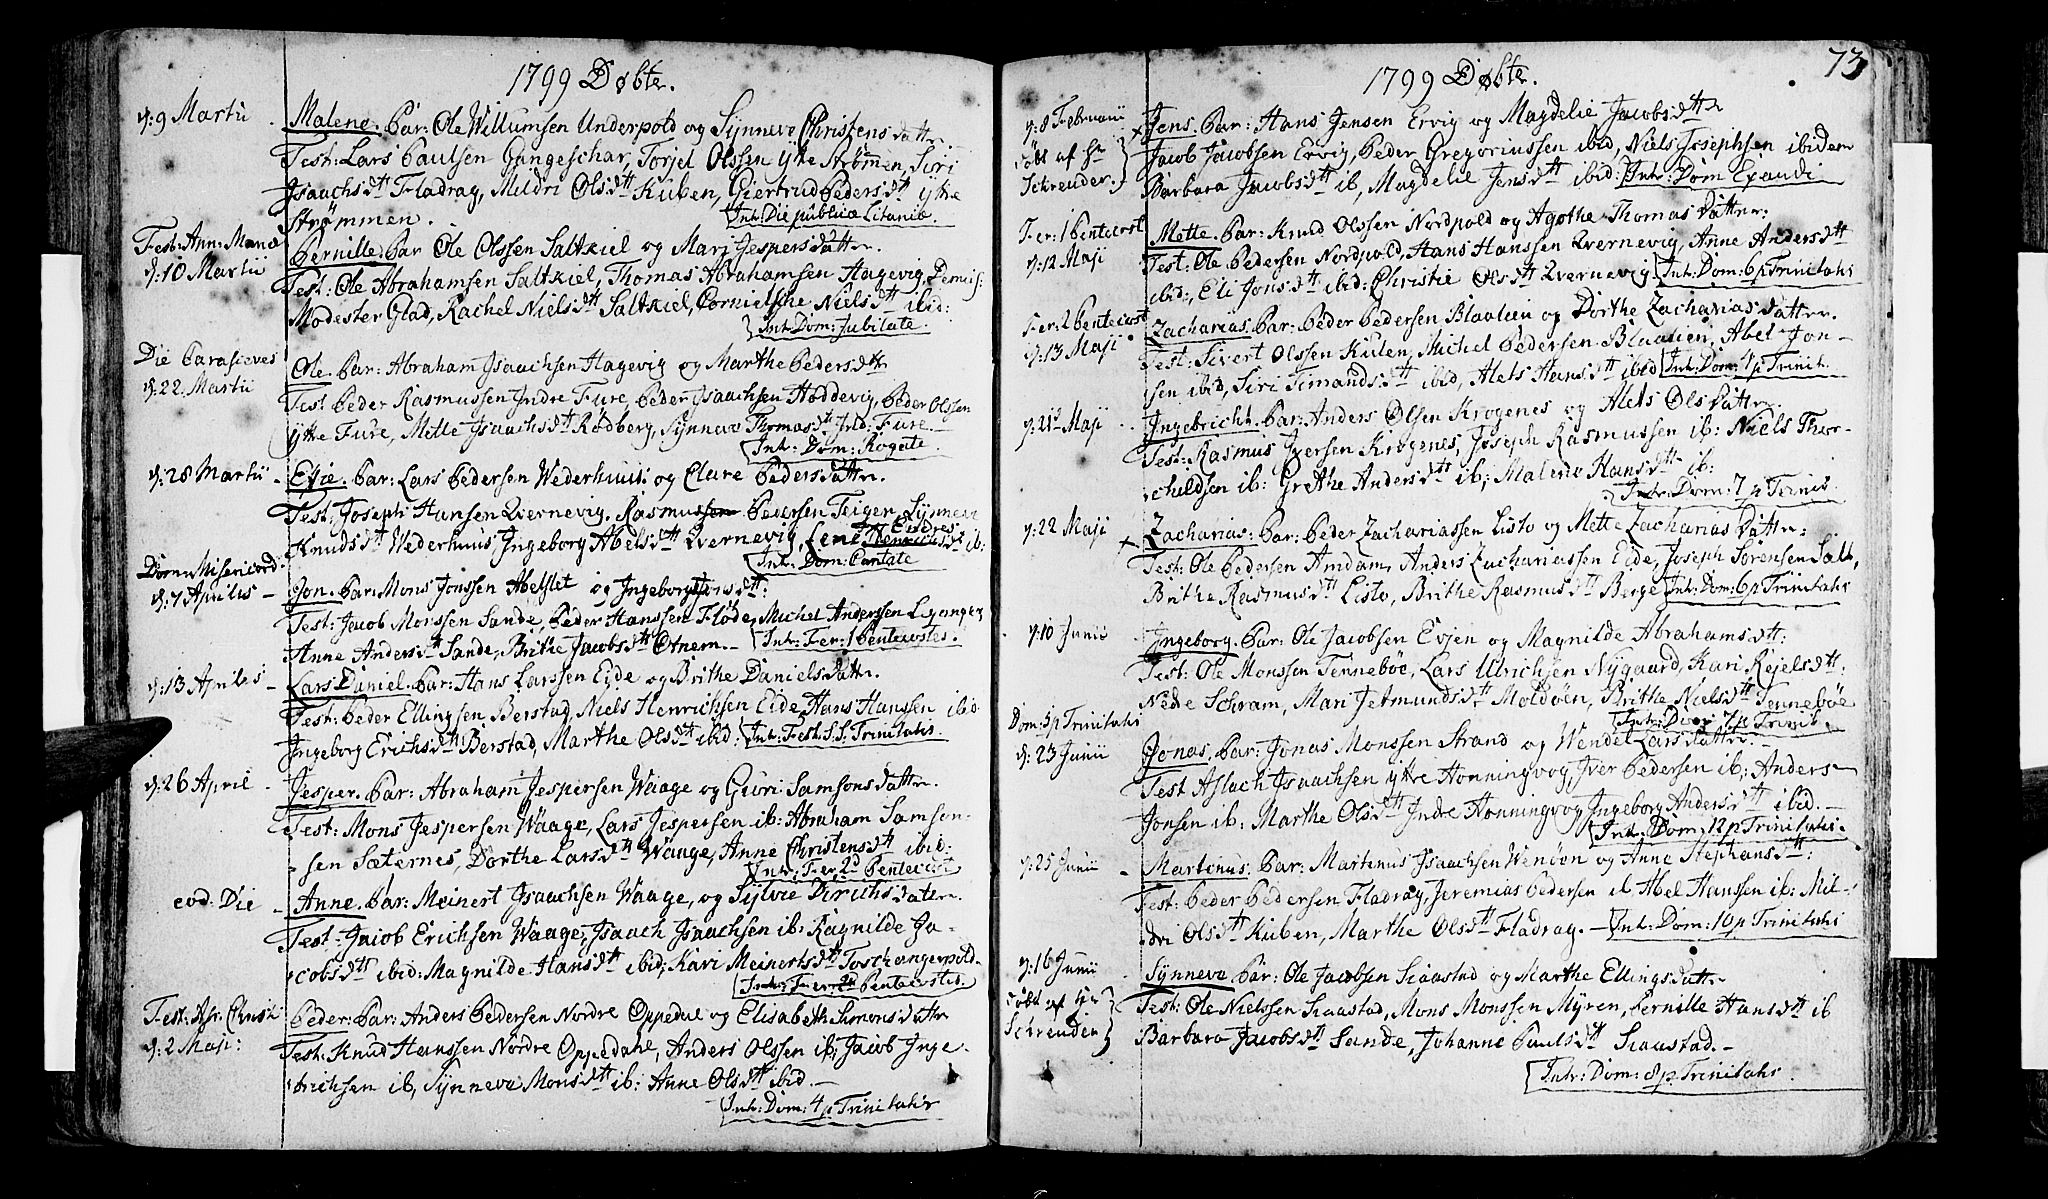 1799 Døbte.
d: 9 Martii
Malene. Par: Ole Willumsen Underpold og Synneve Christens datter.
Test: Lars Paulsen Gangeschar, Torjel Olssen ytte Strømmen, Siri
Isaachsdtt Fladrag, Mildri Olsdtt Kuben, Giertrud Pedersdtt ytre
Strømmen.
Intr: Die publicæ Litaniæ.
Fest: Ann: Mariæ
d: 10 Martii
Pernille. Par Ole Olssen Saltkiel og Mari Jespersdatter.
Test: Ole Abrahamsen Saltkiel, Thomas Abrahamsen Hagevig, Demis:
Modester Glad, Rachel Nielsdtt Saltkiel, Cornielsche Nielsdtt ibid:
Int: Dom: Jubilate.
Die Parasceves
d: 22 Martii
Ole. Par: Abraham Isaachsen Hagevig og Marthe Pedersdttr
Test Peder Rasmussen Indre Fure, Peder Isaachsen Høddevig, Peder Olssen
ytte Fure, Mette Isaachsdtt Rødberg, Synneve Thomasdtt Ind: Fure.
Int: Dom: Rogate.
d: 28 Martii
Elsie. Par: Lars Pedersen Wederhuus og Clare Pedersdatter.
Test: Joseph Hansen Qvernevig. Rasmussen Pedersen Teigen,
Knudsdtt Wederhuus Ingeborg Abelsdtt Qvernevig, Lene Henrichsdtt ib:
Int: Dom: Cantate
Dom: Misericord:
d: 7 Aprilis
Jon. Par: Mons Jonssen Abelslet og Ingeborg Jonsdtt:
Test: Jacob Monssen Sande, Peder Hanssen Fløde, Michel Anderssen Lyonger
Anne Andersdtt Sande, Brithe Jacobsdtt Otnem.
Int: Fer: 1 Pentecostes.
d: 13 Apriles
Lars Daniel. Par: Hans Larssen Eide og Brithe Danielsdatter.
Test: Peder Ellingsen Berstad, Niels Henrichsen Eide, Hans Hanssen ibid
Ingeborg Erichsdtt Berstad, Marthe Olsdtt ibid:
Int: Fest: S.S. Trinitatis.
d: 26 April
Jesper. Par: Abraham Jespersen Waage og Guri Samsonsdatter.
Test: Mons Jespersen Waage, Lars Jespersen ib: Abraham Samson-
sen Sæternes, Dorthe Larsdtt Waage, Anne Christensdtt ibid:
Int: Fer: 2d Pentecost
eod: Die
Anne. Par: Meinert Isaachsen Waage, og Sylvie Dirichsdatter.
Test: Jacob Erichsen Waage, Isaach Isaachsen ib: Ragnilde Ja-
cobsdtt ibid: Magnilde Hansdtt ibid; Kari Meinertsdtt Toschangerpold
Int: Fer: 2d Pentecostes.
Fest: Asc: Christi
d: 2 Maji:
Peder. Par: Anders Pedersen Nordre Oppedal og Elisabeth Simonsdatter
Test: Knud Hanssen Nordre Oppedahl, Anders Olssen ib; Jacob Inge-
brichsen ib, Synneve Monsdtt ib: Anne Olsdtt ibid.
Int: Dom: 4 p Trinitatis
1799 Døbte.
73
d: 8 Februarii
døbt af Hr
Schreuder.
Jens. Par: Hans Jensen Ervig og Magdelie Jacobsdttr
Jacob Jacobsen Ervig, Peder Gregoriussen ibid, Niels Josephsen ibidem
Barbara Jacobsdtt ib, Magdelie Jensdtt ibid:
Int: Dom Exaudi
Fer: 1 Pentecost
d: 12 Maji
Mette. Par: Knud Olssen Nordpold og Agothe Thomasdatter:
Test: Ole Pedersen Nordpold, Hans Hanssen Qvernevig, Anne Andersdtt
ibid:, Eli Jonsdtt ibid: Christie Olsdtt Qvernevig.
Int: Dom: 6 p Trinitatis
Fer: 2 Pentecost
d: 13 Maji
Zacharias. Par: Peder Pedersen Blaalien og Dorthe Zachariasdatter.
Test: Sivert Olssen Kulen, Michel Pedersen Blaalien, Abel Jon-
sen ibid, Siri Timandsdtt ibid, Alets Hansdtt ibid
Int: Dom: 4 p Trinit.
d: 21d Maji
Ingebricht. Par: Anders Olsen Krogenes og Alets Olsdatter.
Test: Rasmus Iversen Krogenes, Joseph Rasmussen ib: Niels Thor-
childsen ib: Grethe Andersdtt ib; Malene Hansdtt ib:
Int: Dom: 7 p Trinit.
d: 22 Maji
Zacharias. Par: Peder Zachariassen Listo og Mette Zachariasdatter:
Test: Ole Pedersen Amdam, Anders Zachariassen Eide, Joseph Sørensen Salt,
Brithe Rasmusdtt Listo, Brithe Rasmusdtt Berge
Int: Dom: 6 p Trinitatis
d: 10 Junii
Ingeborg. Par: Ole Jacobsen Evjen og Magnilde Abrahamsdtt:
Test: Ole Monssen Tennebøe, Lars Ulrichsen Nygaard, Kari Rejelsdtt:
Nede Schram, Mari Jetmundsdtt Moldøen, Brithe Nielsdtt Tennebøe
Int: Dom: 7 p Trinit.
Dom: 5 p Trinitatis
d: 23 Junii
Jonas. Par: Jonas Monssen Strand og Wendel Larsdatter.
Test Aslach Isaachsen ytre Honningvog, Iver Pedersen ib; Anders
Jonsen ib: Marthe Olsdtt Indre Honningvog, Ingeborg Andersdtt ibid.
Int: Dom: 12 p Trinitatis.
d: 25 Junii
Martenus. Par: Martenus Isaachsen Wenøen og Anne Stephansdtt:
Test: Peder Pedersen Fladrag, Jeremias Pedersen ib Abel Hanssen ib: Mil-
dri Olsdtt Kuben, Marthe Olsdtt Fladrag.
Int: Dom: 10 p Trinitatis
d: 16 Junii
døbt af Hr
Schreuder
Synneve Par: Ole Jacobsen Staastad og Marthe Ellingsdatter
Test: Ole Nielssen Staastad, Mons Monssen Myren, Pernille Hansdtt ib
Barbara Jacobsdtt Sande, Johanne Paulsdtt Staastad.
Int: Dom: 8 p Trinitatis.